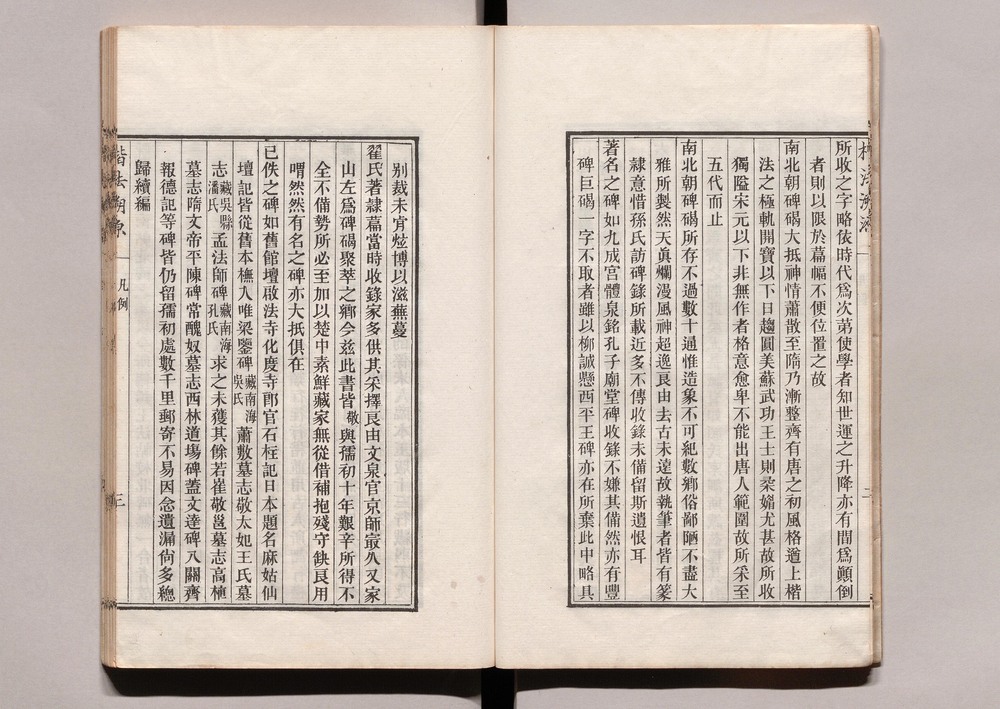 所收之字略依時代爲次第使學者知世運之升降亦有閒爲顚倒
者則以限於葍幅不便位置之故
南北朝碑碣大抵神情蕭散至隋乃漸整齊有唐之初風格遒上楷
法之極軌開寶以下日趨圓美蘇武功王士則柔媚尤甚故所收
獨隘宋元以下非無作者格意愈卑不能出唐人範圍故所采至
五代而止
南北朝碑碣所存不過數十通惟造象不可紀數鄉俗鄙陋不盡大
雅所製然天眞爛漫風神超逸良由去古未遠故執筆者皆有篆
隸意惜孫氏訪碑錄所載近多不傳收錄未備留斯遺恨耳
著名之碑如九成宫醴泉銘孔子廟堂碑收錄不嫌其備然亦有豐
碑巨碣一字不取者雖以柳誠懸西平王碑亦在所棄此中略具
别裁未肯炫博以滋蕪蔓
翟氏著隸篇當時收錄家多供其采擇良由文泉官京師最久又家
山左爲碑碣聚萃之鄉今兹此書皆敬與孺初十年艱辛所得不
全不備勢所必至加以楚中素鮮藏家無從借補抱殘守缺良用
喟然然有名之碑亦大抵俱在
已佚之碑如舊館壇啟法寺化度寺郎官石柱記日本題名麻姑仙
壇記皆從舊本橅入唯梁鑒碑藏南海吳氏蕭敷墓志敬太妃王氏墓
志藏吳縣潘氏孟法師碑藏南海孔氏求之未獲其餘若崔敬邕墓志高植
墓志隋文帝平陳碑常醜奴墓志西林道塲碑蓋文達碑八關齊
報德記等碑皆仍留孺初處數千里郵寄不易因念遺漏尙多總
歸續編
楷法溯原
凡例
三